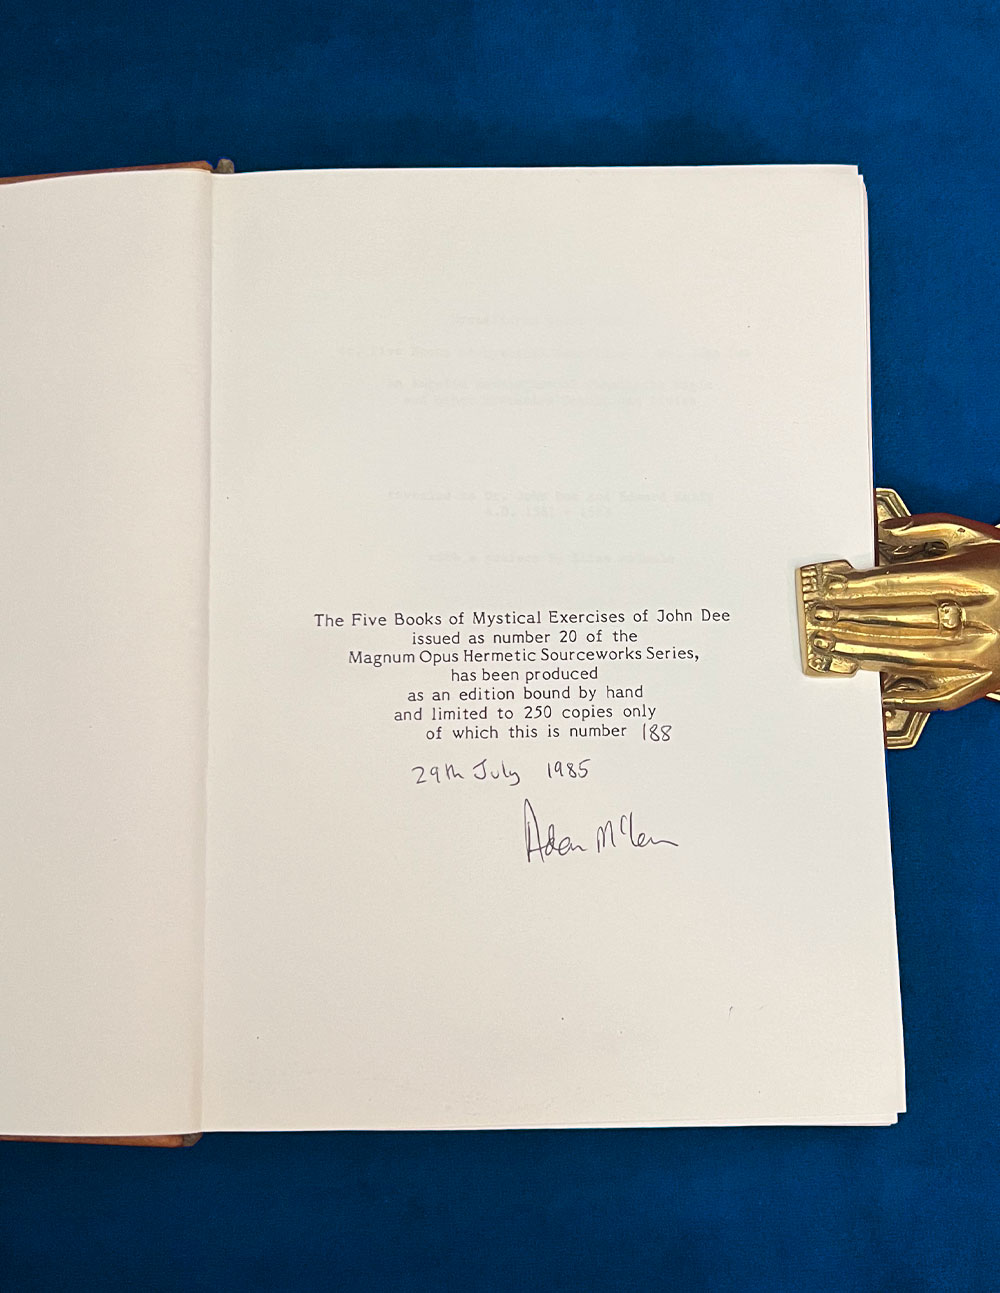 The Five Books of Mystical Exercises of John Dee
issued as number 20 of the
Magnum Opus Hermetic Sourceworks Series,
has been produced
as an edition bound by hand
and limited to 250 copies only
of which this is number 188
29th July 1985
Adam McLean